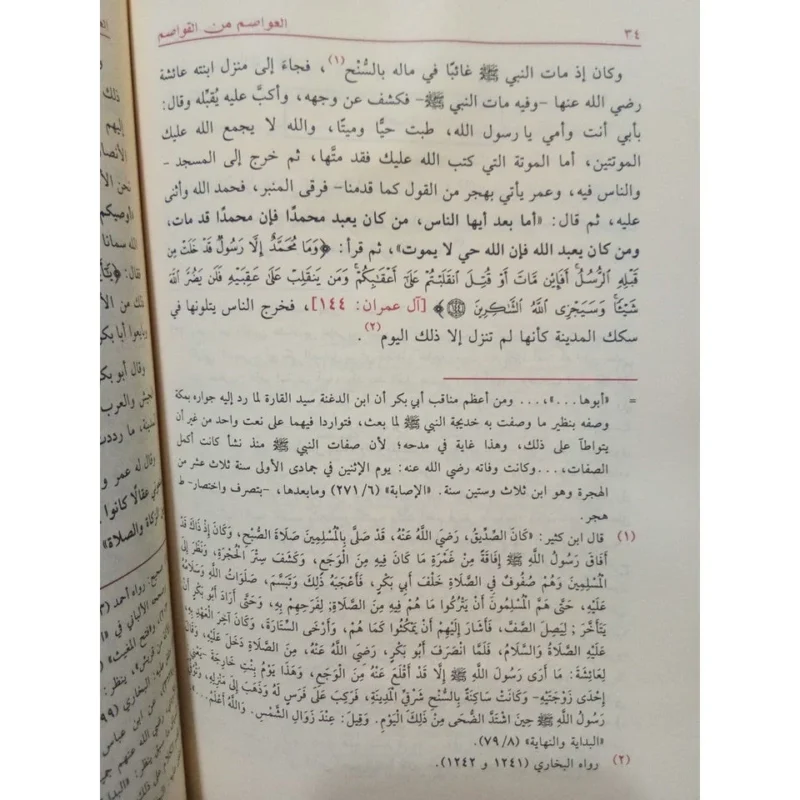 ٣٤
العواصم من القواصم
وكان إذ مات النبي ﷺ غائبًا في ماله بالسُّنْح(١)، فجاءَ إلى منزل ابنته عائشة
رضي الله عنها -وفيه مات النبي ﷺ- فكشف عن وجهه، وأكبَّ عليه يُقبِّله وقال:
بأبي أنت وأمي يا رسول الله، طبت حيًّا وميتًا، والله لا يجمع الله عليك
الموتتين، أما الموتة التي كتب الله عليك فقد متَّها، ثم خرج إلى المسجد -
والناس فيه، وعمر يأتي بهجر من القول كما قدمنا- فرقى المنبر، فحمد الله وأثنى
عليه، ثم قال: «أما بعد أيها الناس، من كان يعبد محمدًا فإن محمدًا قد مات،
ومن كان يعبد الله فإن الله حي لا يموت»، ثم قرأ: ﴿وَمَا مُحَمَّدٌ إِلَّا رَسُولٌ قَدْ خَلَتْ مِن
قَبْلِهِ ٱلرُّسُلُ أَفَإِيْن مَّاتَ أَوْ قُتِلَ ٱنقَلَبْتُمْ عَلَىٰٓ أَعْقَـٰبِكُمْ وَمَن يَنقَلِبْ عَلَىٰ عَقِبَيْهِ فَلَن يَضُرَّ ٱللَّهَ
شَيْـًٔا وَسَيَجْزِى ٱللَّهُ ٱلشَّـٰكِرِينَ ١٤٤﴾ [آل عمران: ١٤٤]، فخرج الناس يتلونها في
سكك المدينة كأنها لم تنزل إلا ذلك اليوم(٢).
= «أبوها...»،... ومن أعظم مناقب أبي بكر أن ابن الدغنة سيد القارة لما رد إليه جواره بمكة
وصفه بنظير ما وصفت به خديجة النبي ﷺ لما بعث، فتواردا فيهما على نعت واحد من غير أن
يتواطآ على ذلك، وهذا غاية في مدحه؛ لأن صفات النبي ﷺ منذ نشأ كانت أكمل
الصفات،...وكانت وفاته رضي الله عنه: يوم الإثنين في جمادى الأولى سنة ثلاث عشر من
الهجرة وهو ابن ثلاث وستين سنة. «الإصابة» (٢٧١/٦) ومابعدها، -بتصرف واختصار- ط
هجر.
(١) قال ابن كثير: «كَانَ الصِّدِّيقُ، رَضِيَ اللَّهُ عَنْهُ، قَدْ صَلَّى بِالْمُسْلِمِينَ صَلَاةَ الصُّبْحِ، وَكَانَ إِذْ ذَاكَ قَدْ
أَفَاقَ رَسُولُ اللَّهِ ﷺ إِفَاقَةً مِنْ غَمْرَةِ مَا كَانَ فِيهِ مِنَ الْوَجَعِ، وَكَشَفَ سِتْرَ الْحُجْرَةِ، وَنَظَرَ إِلَى
الْمُسْلِمِينَ وَهُمْ صُفُوفٌ فِي الصَّلَاةِ خَلْفَ أَبِي بَكْرٍ، فَأَعْجَبَهُ ذَلِكَ وَتَبَسَّمَ، صَلَوَاتُ اللَّهِ وَسَلَامُهُ
عَلَيْهِ، حَتَّى هَمَّ الْمُسْلِمُونَ أَنْ يَتْرُكُوا مَا هُمْ فِيهِ مِنَ الصَّلَاةِ; لِفَرَحِهِمْ بِهِ، وَحَتَّى أَرَادَ أَبُو بَكْرٍ أَنْ
يَتَأَخَّرَ ; لِيَصِلَ الصَّفَّ، فَأَشَارَ إِلَيْهِمْ أَنْ يَمْكُثُوا كَمَا هُمْ، وَأَرْخَى السِّتَارَةَ، وَكَانَ آخِرَ الْعَهْدِ بِهِ،
عَلَيْهِ الصَّلَاةُ وَالسَّلَامُ، فَلَمَّا انْصَرَفَ أَبُو بَكْرٍ، رَضِيَ اللَّهُ عَنْهُ، مِنَ الصَّلَاةِ دَخَلَ عَلَيْهِ، وَقَالَ
لِعَائِشَةَ: مَا أَرَى رَسُولَ اللَّهِ ﷺ إِلَّا قَدْ أَقْلَعَ عَنْهُ مِنَ الْوَجَعِ، وَهَذَا يَوْمُ بِنْتِ خَارِجَةَ -يَعْنِي
إِحْدَى زَوْجَتَيْهِ- وَكَانَتْ سَاكِنَةً بِالسُّنْحِ شَرْقِيَّ الْمَدِينَةِ، فَرَكِبَ عَلَى فَرَسٍ لَهُ وَذَهَبَ إِلَى مَنْزِلِهِ، وَتُوُفِّيَ
رَسُولُ اللَّهِ ﷺ حِينَ اشْتَدَّ الضُّحَى مِنْ ذَلِكَ الْيَوْمِ. وَقِيلَ: عِنْدَ زَوَالِ الشَّمْسِ. وَاللَّهُ أَعْلَمُ...».
«البداية والنهاية» (٧٩/٨).
(٢) رواه البخاري (١٢٤١ و ١٢٤٢).
ذلك
إليهم
الأنصار
نحن الأ
«أوصيكم
الله سمانا
قال: ﴿يَٰٓأَ
ذلك من الأ
وبايعوا أبا بكر
وقال أبو بكر
لجيش والعرب
لمدينة، ما رددت
وقال له عمر و
عقالًا كانوا
الزكاة والصلاة»
صحيح: رواه أحمد
وصححه الألباني في